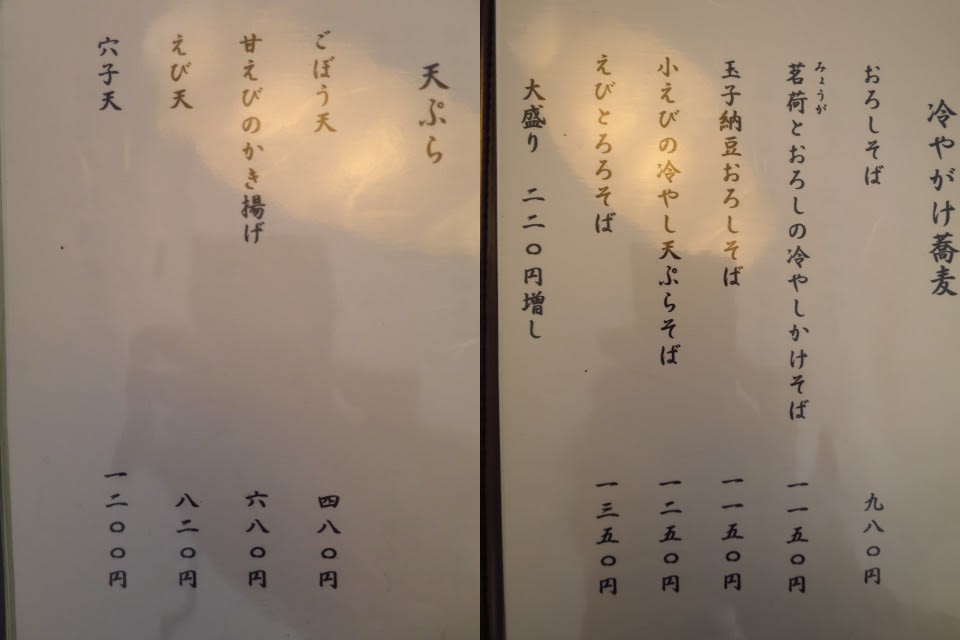 冷やがけ蕎麦
おろしそば 九八〇円
みょうが
茗荷とおろしの冷やしかけそば 一一五〇円
玉子納豆おろしそば 一一五〇円
小えびの冷やし天ぷらそば 一二五〇円
えびとろろそば 一三五〇円
大盛り 二二〇円増し
天ぷら
ごぼう天 四八〇円
甘えびのかき揚げ 六八〇円
えび天 八二〇円
穴子天 一二〇〇円